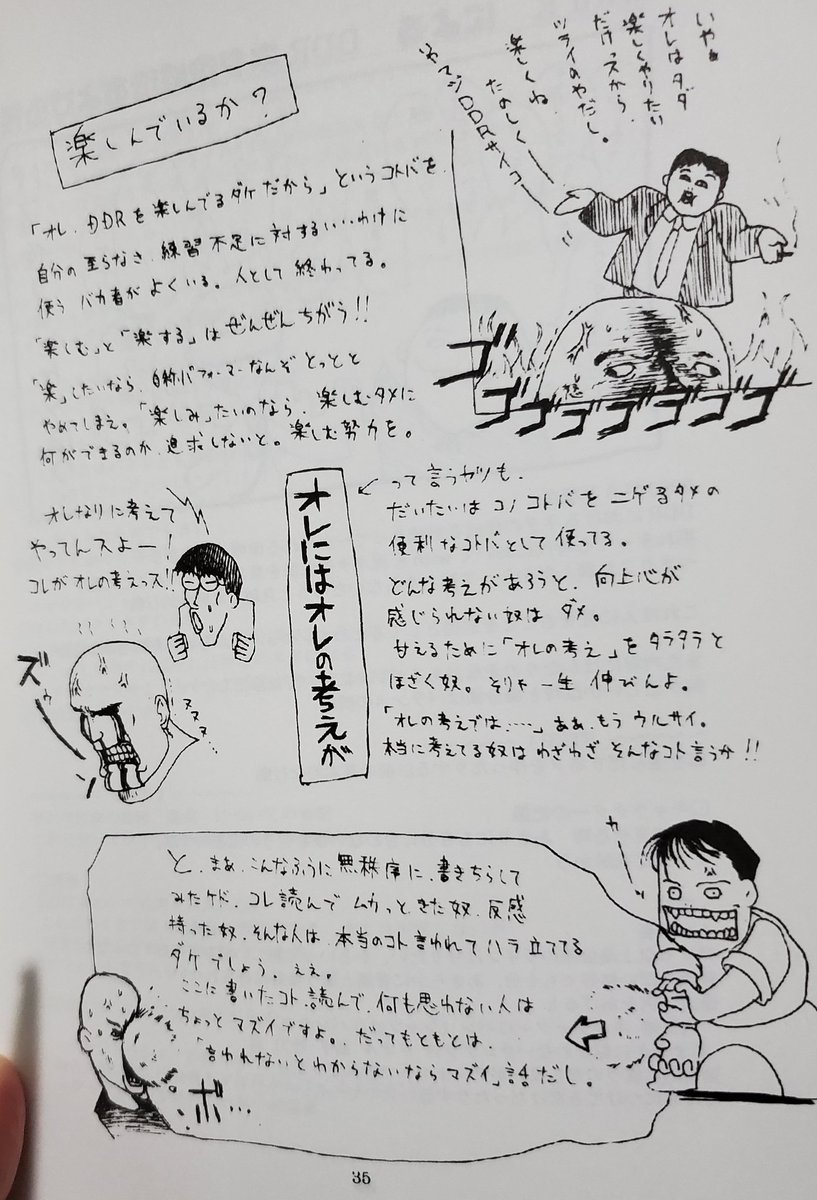 楽しんでいるか?
「オレ、DDRを楽しんでるダケだから」というコトバを、
自分の至らなさ、練習不足に対するいいわけに
使うバカ者がよくいる。人として終わってる。
「楽しむ」と「楽する」はぜんぜんちがう!!
「楽」したいなら、自称パフォーマーなんぞとっとと
やめてしまえ。「楽しみ」たいのなら、楽しむタメに
何ができるのか、追求しないと。楽しむ努力を。
いやぁ
オレはタダ
楽しくやりたい
だけっスから、
ツライのやだし。
楽しくね、
たのしくー
いやマジDDRサイコー
ゴゴゴゴゴゴゴゴ
怒
オレにはオレの考えが
って言うヤツも、
だいたいはコノコトバをニゲるタメの
便利なコトバとして使ってる。
どんな考えがあろうと、向上心が
感じられない奴はダメ。
甘えるために「オレの考え」をタラタラと
ほざく奴。そりゃ一生伸びんよ。
「オレの考えでは……」ああ、もうウルサイ。
本当に考えてる奴はわざわざそんなコト言うか!!
オレなりに考えて
やってんスよー!
コレがオレの考えっス!!
ズゥ
ン
ヌヌヌ…
と、まぁ、こんなふうに無秩序に、書きちらして
みたケド、コレ読んでムカっときた奴、反感
持った奴、そんな人は、本当のコト言われてハラ立ててる
ダケでしょう。ええ。
ここに書いたコト、読んで、何も思わない人は
ちょっとマズイですよ。だってもともとは、
「言われないとわからないならマズイ」話だし。
カ
ボ…
35